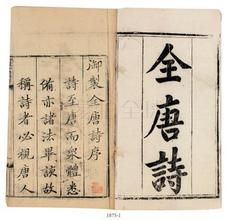 全唐詩
御製全唐詩序
詩至唐而衆體悉
備亦諸法畢該故
稱詩者必視唐人
1075-1